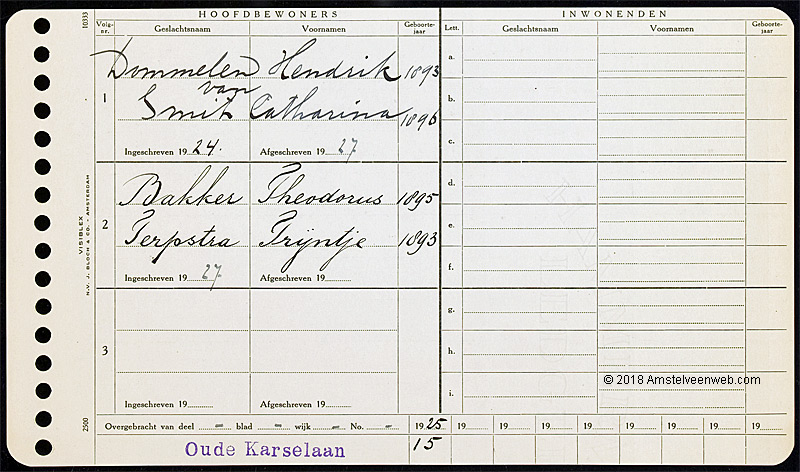 HOOFDBEWONERS
INWONENDEN
10333
Volg-nr.
Geslachtsnaam
Voornamen
Geboorte-jaar
Lett.
Geslachtsnaam
Voornamen
Geboorte-jaar
1
Dommelen Hendrik 1893
van
Smit Catharina 1896
Ingeschreven 1924. Afgeschreven 1927
2
Bakker Theodorus 1895
Terpstra Trijntje 1893
Ingeschreven 1927 Afgeschreven 19
3
Ingeschreven 19 Afgeschreven 19
a.
b.
c.
d.
e.
f.
g.
h.
i.
VISIBLEX
N.V. J. BLOCH & CO. - AMSTERDAM
2500
© 2018 Amstelveenweb.com
Overgebracht van deel - blad - wijk - No. - 1925 19 19 19 19 19 19 19 19
Oude Karselaan 15